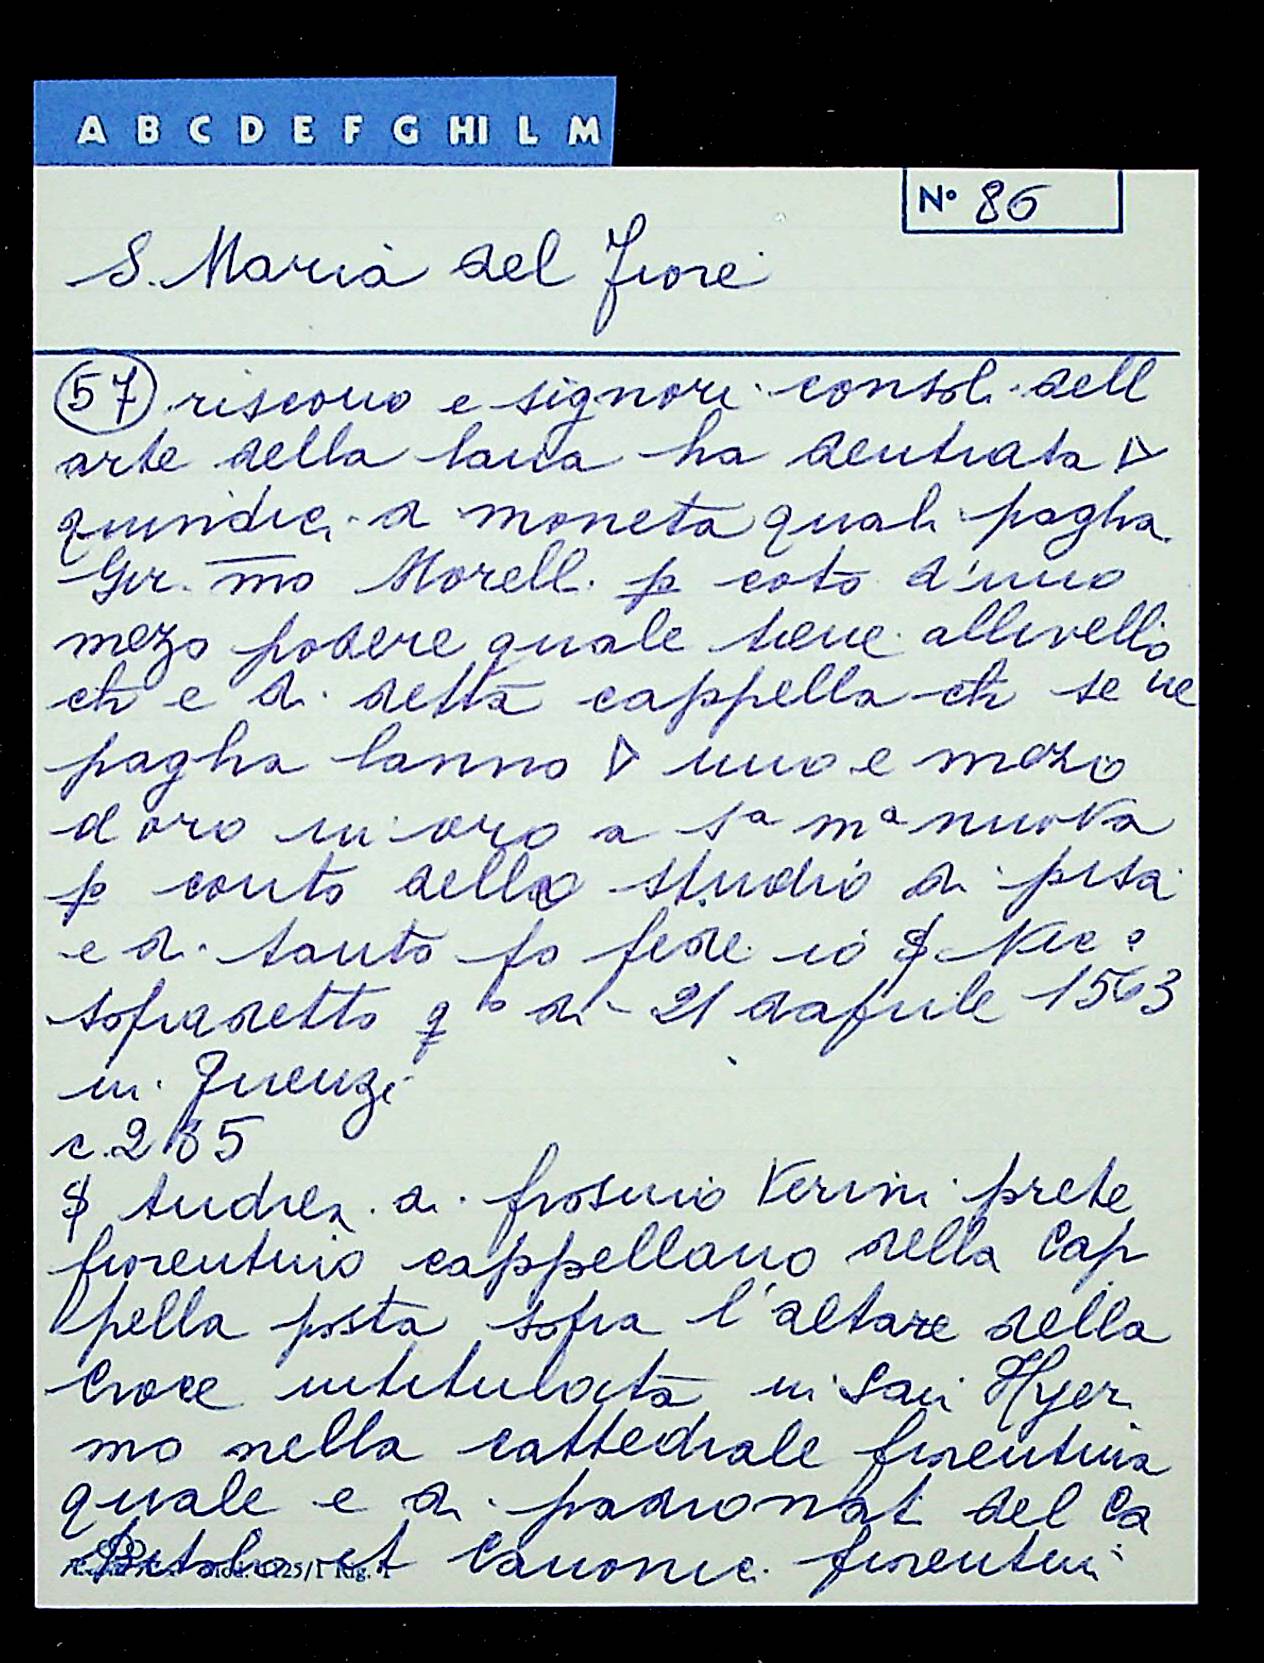 A B C D E F G HI L M
N° 86
S. Maria del Fiore
57 riscono e signori consoli dell
arte della lana ha dentrata ▷
quindici di moneta quali pagha
Gir. mo Morelli p coto d'uno
mezo podere quale tiene allivello
ch e di detta cappella ch se ne
pagha lanno ▷ uno e mezo
d oro in oro a Sa ma nuova
p conto dello studio di pisa
e di tanto fo fede io $ Nic o
sopradetto q o di 21 daprile 1563
in Firenze
c. 265
$ Andrea di frosino Verini prete
fiorentino cappellano della Cap
pella posta sopra l'altare della
Croce intitulata in San Hyer.
mo nella cattedrale fiorentina
quale e di padronat del Ca
pitolo et Canonici fiorentini